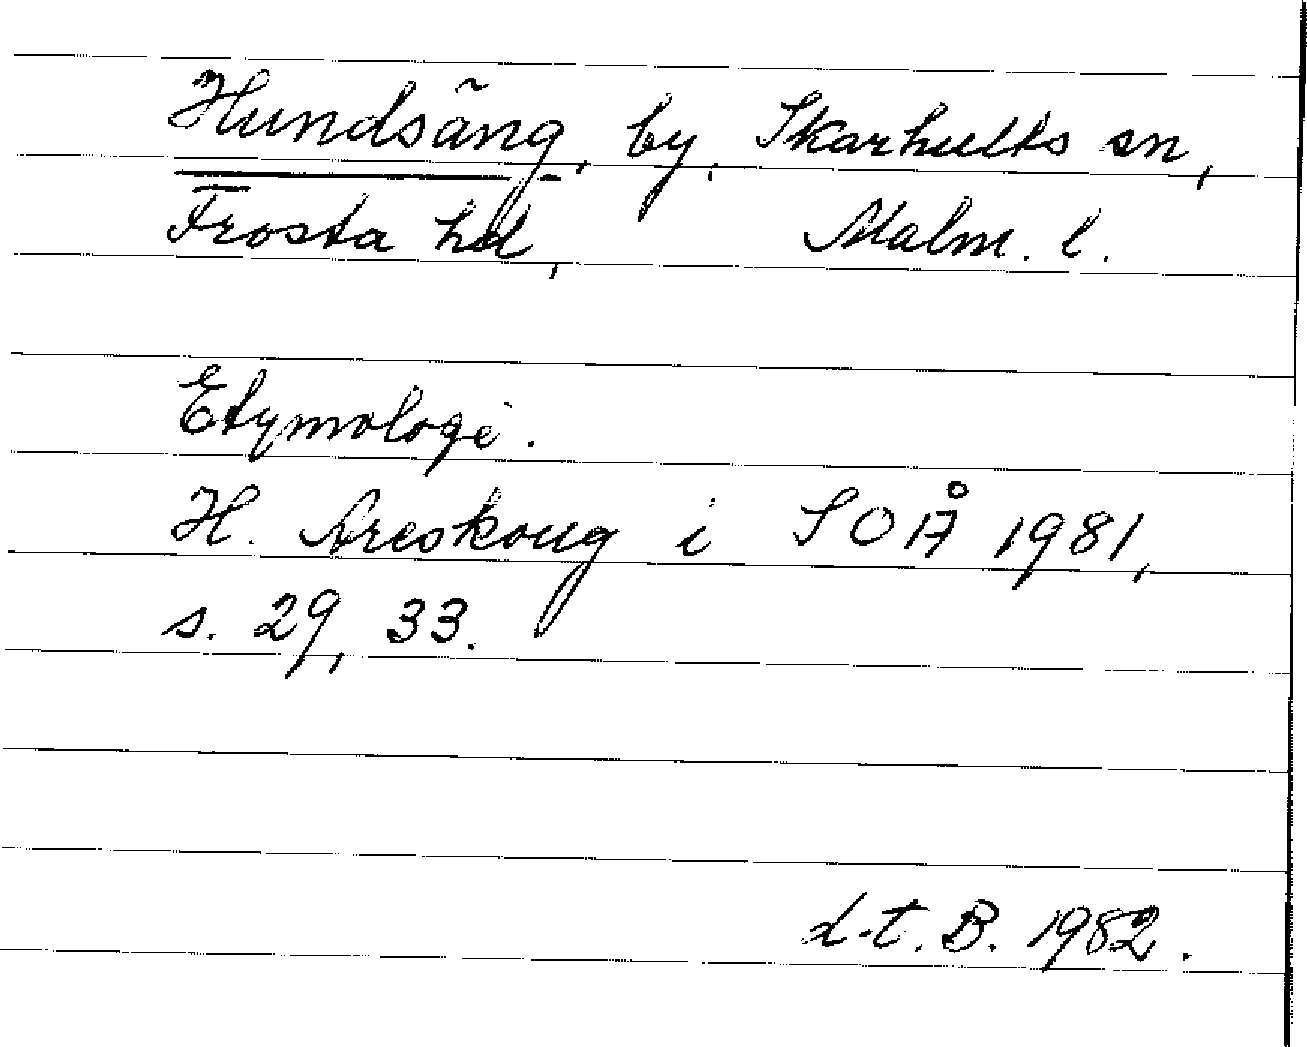 Hundsäng, by, Skarhults sn,
Frosta hd, Malm. l.
Etymologi.
H. Areskoug i SOÅ 1981,
s. 29, 33.
L-t. B. 1982.